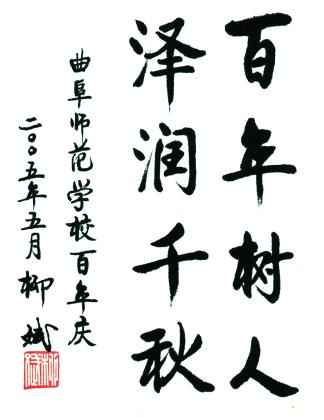 百年树人
泽润千秋
曲阜师范学校百年庆
二〇〇五年五月柳斌